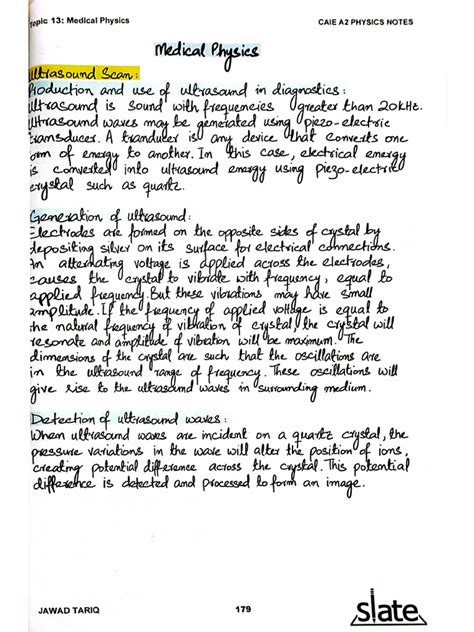 Topic 13: Medical Physics CAIE A2 PHYSICS NOTES
Medical Physics
Ultrasound Scan:
Production and use of ultrasound in diagnostics:
Ultrasound is sound with frequencies greater than 20kHz.
Ultrasound waves may be generated using piezo-electric
transducer. A tranducer is any device that converts one
form of energy to another. In this case, electrical energy
is converted into ultrasound energy using piezo-electric
crystal such as quartz.
Generation of ultrasound:
Electrodes are formed on the opposite sides of crystal by
depositing silver on its surface for electrical connections.
An alternating voltage is applied across the electrodes,
causes the crystal to vibrate with frequency, equal to
applied frequency. But these vibrations may have small
amplitude. If the frequency of applied voltage is equal to
the natural frequency of vibration of crystal, the crystal will
resonate and amplitude of vibration will be maximum. The
dimensions of the crystal are such that the oscillations are
in the ultrasound range of frequency. These oscillations will
give rise to the ultrasound waves in surrounding medium.
Detection of ultrasound waves:
When ultrasound waves are incident on a quartz crystal, the
pressure variations in the wave will alter the position of ions,
creating potential difference across the crystal. This potential
difference is detected and processed to form an image.
JAWAD TARIQ 179 slate